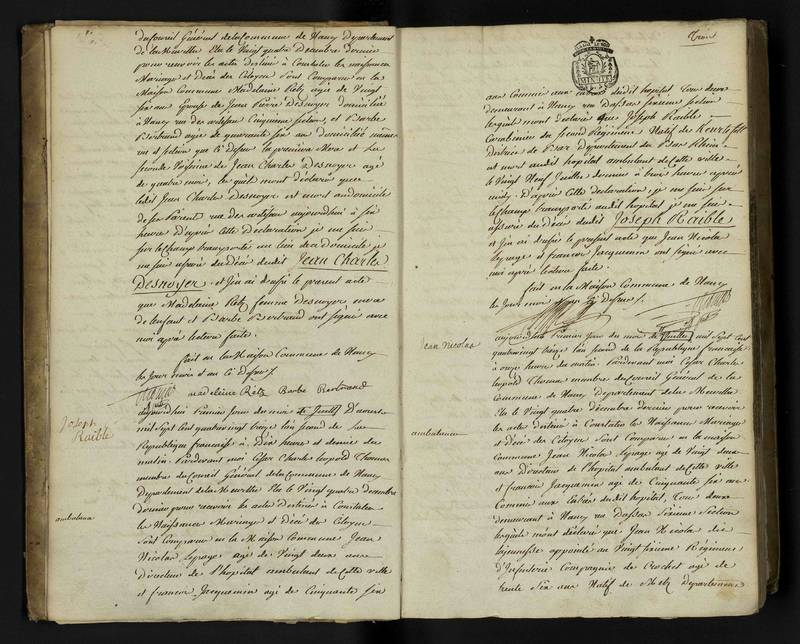 du Conseil Général de la Commune de Nancy Departement
de la Meurthe Elu le Vingt quatre Decembre dernier
pour recevoir les actes destinés à Constater les naissances
Mariage et Décé des Citoyens Sont Comparue en la
Maison Commune Madelaine Retz agée de Vingt
six ans Epouse de Jean Pierre Desnoyer domicilié
à Nancy rue des artisans Cinquieme section, et Barbe
Bertrand agée de quarante six ans domiciliée même
rue et section que Ci dessus la premiere Mere et La
seconde Voisine de Jean Charles Desnoyer agé
de quatre mois, lesquels m'ont déclaré que
ledit Jean Charles Desnoyer est mort au domicile
de ses Parents rue des artisans aujourdhui à six
heures D'après Cette Déclaration je me suis
sur le Champ transporté au lieu de ce domicile je
me suis assuré du Décé dudit Jean Charles
Desnoyer, et J'en ai dressé le present acte
que Madelaine Retz femme desnoyer mere
de l'enfant et Barbe Bertrand ont signé avec
moi après lecture faite.
fait en la Maison Commune de Nancy
les Jour mois et an Ci dessus
madeleine Rétz Barbe Bertrand
Joseph
Raible
aujourdhui Premier jour du mois de Juillet
mil sept Cent quatre vingt treize l'an second de La
Republique francaise à Dix heures et demie du
matin Pardevant moi César Charle Léopold Thomas
membre du Conseil Général de la Commune de Nancy
Departement de la Meurthe Elu le Vingt quatre decembre
dernier pour recevoir les actes Destinés à Constater
les Naissances Mariage et Décé des Citoyens
ambulance
Sont Comparue en la Maison Commune Jean
Nicolas Lepage agé de Vingt deux ans
Directeur de l'hopital ambulant de Cette ville
et francois Jacquemin agé de Cinquante six
ans Commis aux entrées dudit hopital Tous deux
demeurant à Nancy rue sixieme section
lesquels m'ont declaré que Joseph Raible
Carabinier du second Regiment Natif de
District de Departement du Bas Rhin
est mort audit hopital ambulant de Cette ville
le Vingt Neuf Juillet dernier à huit heures après
midy. D'après Cette déclaration, je me suis sur
le Champ transporté audit hopital je me suis
assuré du Décé dudit Joseph Raible
et J'en ai dressé le present acte que Jean Nicolas
Lepage et francois Jacquemin ont signé avec
moi après lecture faite.
fait en la Maison Commune de Nancy
les Jour mois et an Ci dessus
ean Nicolas
aujourdhui Premier jour du mois de Juillet mil sept Cent
quatrevingt treize l'an second de la Republique francaise
à onze heures du matin Pardevant moi César Charle
Léopold Thomas membre du Conseil Général de la
Commune de Nancy Departement de la Meurthe
Elu le Vingt quatre décembre dernier pour recevoir
les actes Destinés à Constater les Naissances Mariage
ambulance
et Décé des Citoyens Sont Comparue en la maison
Commune Jean Nicolas Lepage agé de Vingt deux
ans Directeur de l'hopital ambulant de Cette ville
et francois Jacquemin agé de Cinquante six ans
Commis aux Entrées dudit hopital, Tous deux
demeurant à Nancy rue sixieme section
lesquels m'ont déclaré que Jean Nicolas
au Vingt sixieme Regiment
d'Infanterie Compagnie de Crochet agé de
trente six ans Natif de Metz Departement